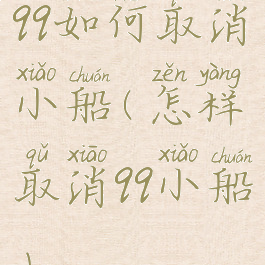 99如何取消
xiǎo chuán zěn yàng
小船(怎样
qǔ xiāo xiǎo chuán
取消99小船
)